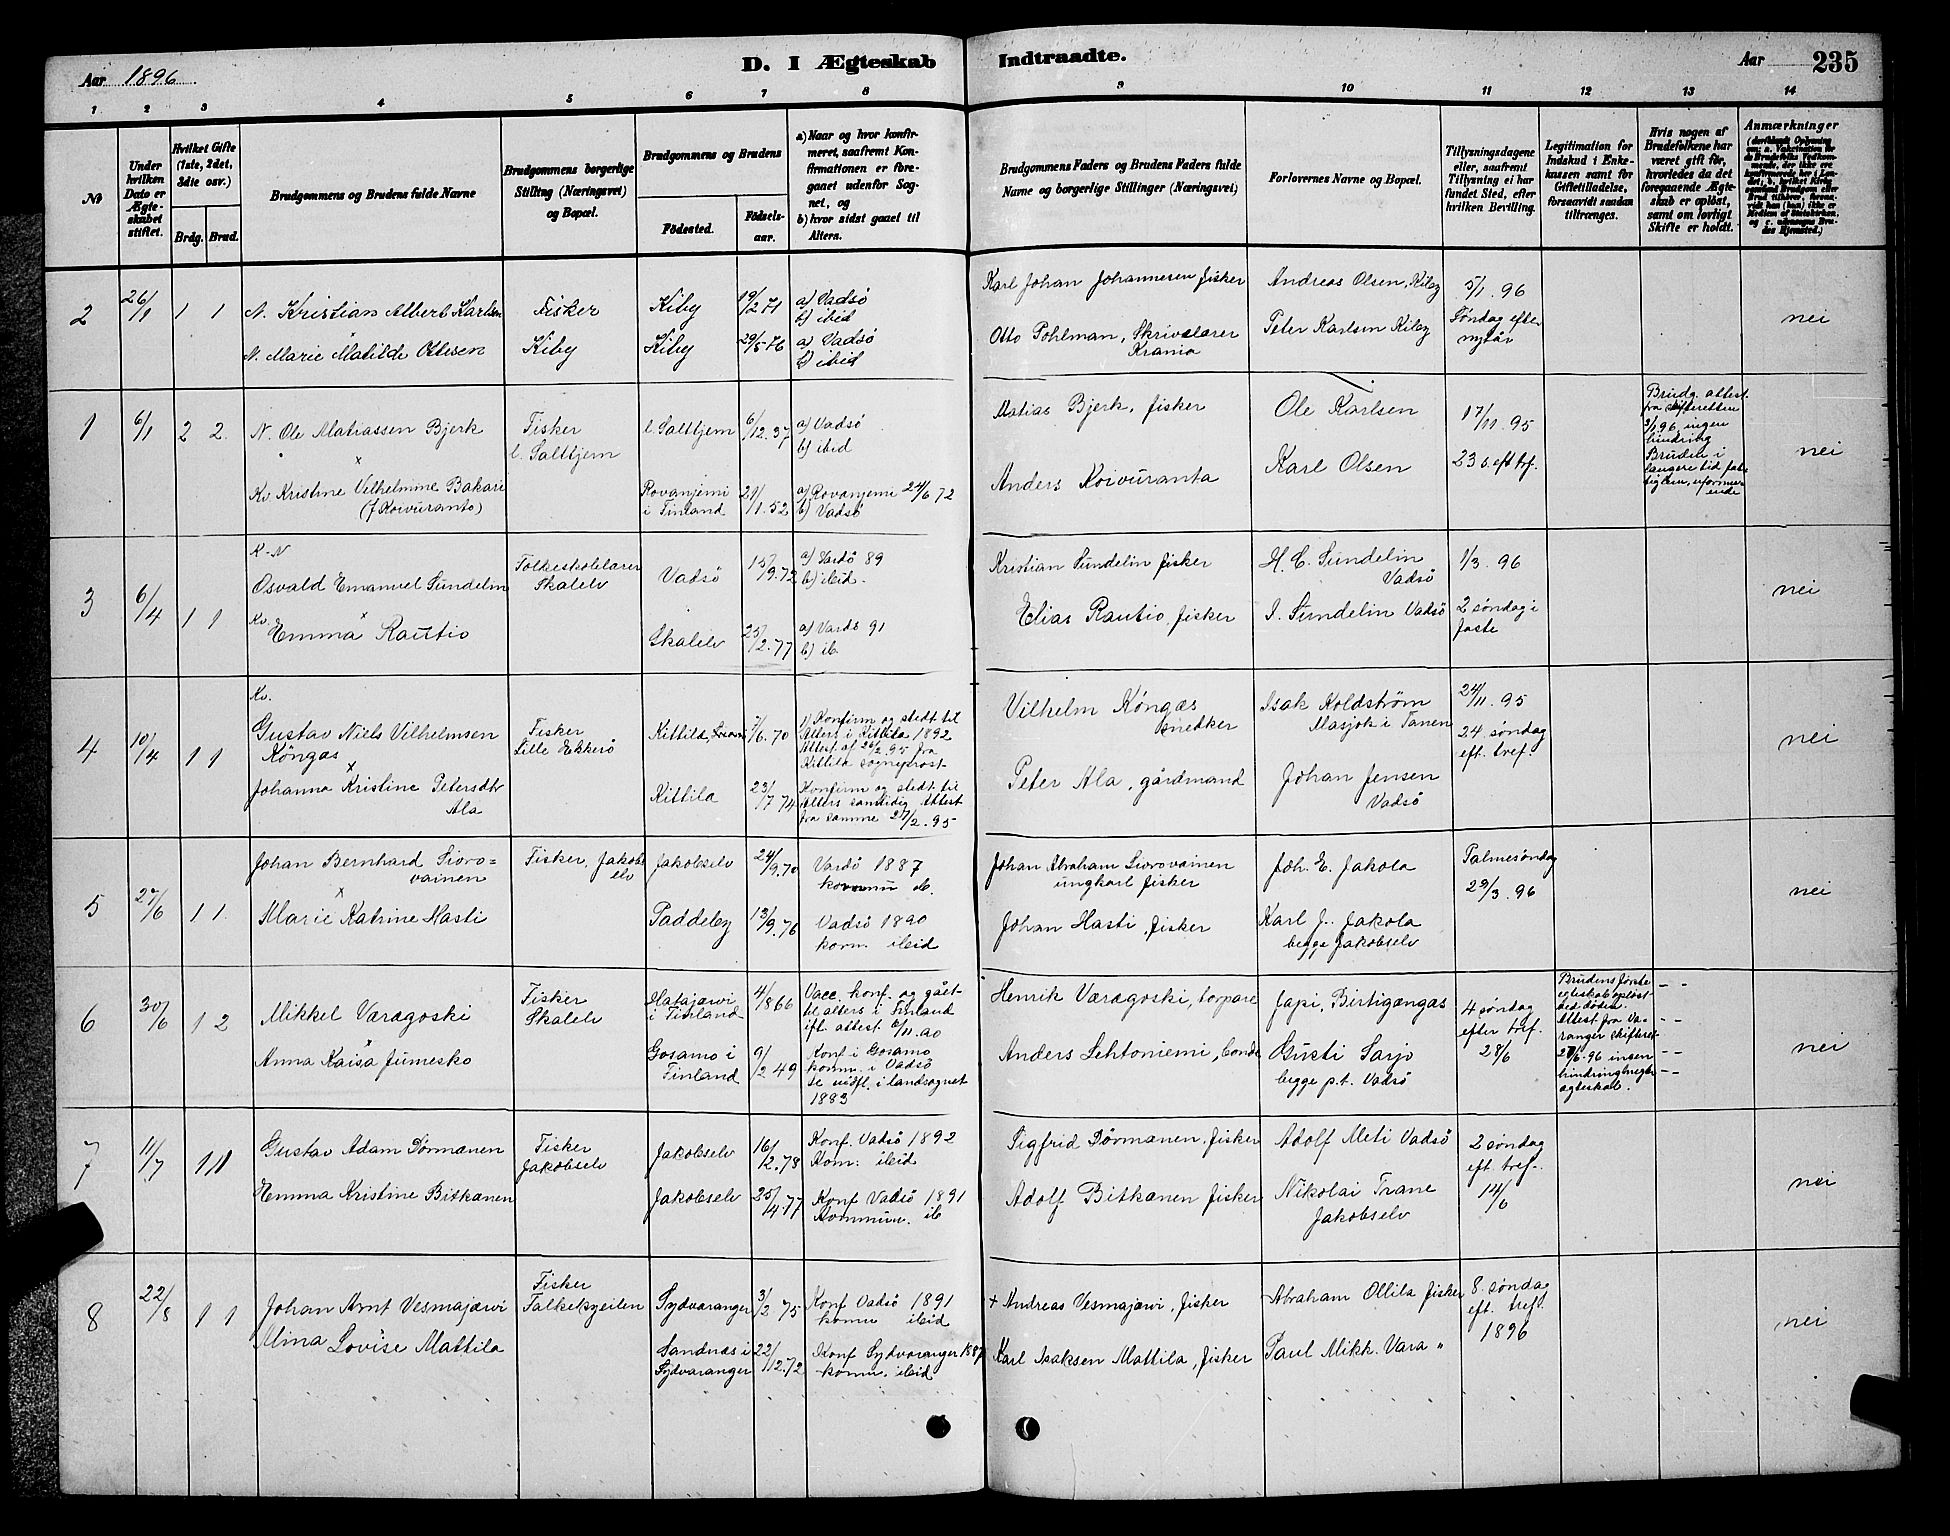 Aar 1896
D. I Ægteskab Indtraadte.
Aar 235
1 2 3 4 5 6 7 8 9 10 11 12 13 14
No
Under hvilken Dato er Ægteskabet stiftet.
Hvilket Gifte (1ste, 2det, 3die osv.)
Brdg. Brud.
Brudgommens og Brudens fulde Navne
Brudgommens borgerlige Stilling (Næringsvei) og Bopæl.
Brudgommens og Brudens
Fødested.
Fødselsaar.
a) Naar og hvor konfirmeret, saafremt Konfirmationen er foregaaet udenfor Sognet, og
b) hvor sidst gaaet til Alters.
Brudgommens Faders og Brudens Faders fulde Navne og borgerlige Stillinger (Næringsvei)
Forlovernes Navne og Bopæl.
Tillysningsdagene eller, saafremt Tillysning ei har fundet Sted, efter hvilken Bevilling.
Legitimation for Indskud i Enkekassen samt for Giftetilladelse, forsaavidt saadan tiltrænges.
Hvis nogen af Brudefolkene har været gift før, hvorledes da det foregaaende Ægteskab er opløst, samt om lovligt Skifte er holdt.
Anmærkninger
2
26/1
1 1
N. Kristian Albert Karlsen
N. Marie Matilde Ottesen
Fisker
Kiby
Kiby 19/2 71
Kiby 29/5 76
a) Vadsö
b) ibid
a) Vadsö
b) ibid
Karl Johan Johannesen fisker
Otto Pohlman, Skrivelærer
Krania
Andreas Olsen, Kiby
Peter Karlsen Kiby
5/1. 96
Søndag efter
nytår
nei
1
6/1
2 2.
N. Ole Matiassen Bjerk
x
Kv. Kristine Vilhelmine Bakari
(f. Koivuranto)
Fisker
l. Saltbjern
l. Saltbjern 6/12. 37
Rovanjemi
i Finland 21/1. 52
a) Vadsö
b) ibid
a) Rovanjemi 24/6 72
b) Vadsö
Matias Bjerk, fisker
Anders Koivuranta
Ole Karlsen
Karl Olsen
17/11. 95
23 s. eft tref.
Brudg. attest
fra skifteretten
3/1 96 ingen
hindring
Bruden i
længere tid
nei
3
6/4
1 1
K-N
Osvald Emanuel Sundelin
x
Kv.
Emma Rautio
Folkeskolelærer
Skalelv
Vadsö 15/9. 72
Skalelv 25/2. 77
a) Vardö 89
b) ibid.
a) Vardö 91
b) ib.
Kristian Sundelin fisker
Elias Rautio, fisker
H. C. Sundelin
Vadsö
I. Sundelin Vadsö
1/3. 96
2 søndag i
faste
nei
4
10/4
1 1
Kv.
Gustav Niels Vilhelmsen
Köngas
x
Johanna Kristine Petersdtr
Ala
Fisker
Lille Ekkerö
Kittila, 7/6. 70
Kittila 23/7 74
1) Konfirm og stedt til
Alters i Kittila 1892
Attest af 26/2. 95 fra
Kittila sogneprost
Konfirm og stedt til
Alters samtidig Attest
fra samme 27/2. 95
Vilhelm Köngas
snedker
Peter Ala, gårdmand
Isak Koldström
Masjok i Tanen
Johan Jensen
Vadsö
24/11. 95
24. søndag
eft. tref.
nei
5
27/6
1 1.
Johan Bernhard Siovo=
vainen
x
Marie Katrine Hasti
Fisker, Jakobs
elv
Jakobselv 24/9. 70
Paddeby 13/9. 76
Vardö 1887
kommu ib.
Vadsö 1890
kom. ibid
Johan Abraham Siovovainen
ungkarl fisker
Johan Hasti, fisker
Joh. E. Jakola
Karl J. Jakola
begge Jakobselv
Palmesøndag
29/3. 96
nei
6
30/6
1 2
Mikkel Varagoski
x
Anna Kaisa Jumesko
Fisker
Skalelv
Matajarvi
i Finland 4/8 66
Gosamo i
Finland 9/2 49
Vacc. konf. og gået
til alters i Finland
ifl. attest 6/11. 90
Konf i Gosamo
komm. i Vadsö
se uidfl. i landsognet
1883
Henrik Varagoski, torpare
Anders Lehtoniemi, bonde
Japi, Birtigangas
Gusti Sarjo
begge p.t. Vadsö
4 søndag
efter tref.
28/6
Brudens første
egteskab opløst
ved døden.
Attest fra Va-
ranger skifteret
27/6. 96 ingen
hindring
egteskab.
nei
7
11/7
1 1
Gustav Adam Dörmænen
Emma Kristine Bitkanen
Fisker
Jakobselv
Jakobselv 16/2. 78
Jakobselv 25/4. 77
Konf. Vadsö 1892
Kom: ibid
Konf Vadsö 1891
Kommun. ib
Sigfrid Dörmanen, fisker
Adolf Bitkanen fisker
Adolf Meti Vadsö
Nikolai Trane
Jakobselv
2 søndag
eft. tref.
14/6
nei
8
22/8
1 1
Johan Arnt Vesmajarvi
Mina Lovise Mattila
Fisker
Falkekyeilen
Sydvaranger 3/2 75
Sandnæs i
Sydvaranger 22/12. 72
Konf Vadsö 1891
komm ibid
Konf Sydvaranger 1887
komm. ibid
+ Andreas Vesmajarvi, fisker
Karl Isaksen Mattila, fisker
Abraham Ollila fisker
Paul Mikk. Vara "
8. søndag
eft. tref.
1896
nei